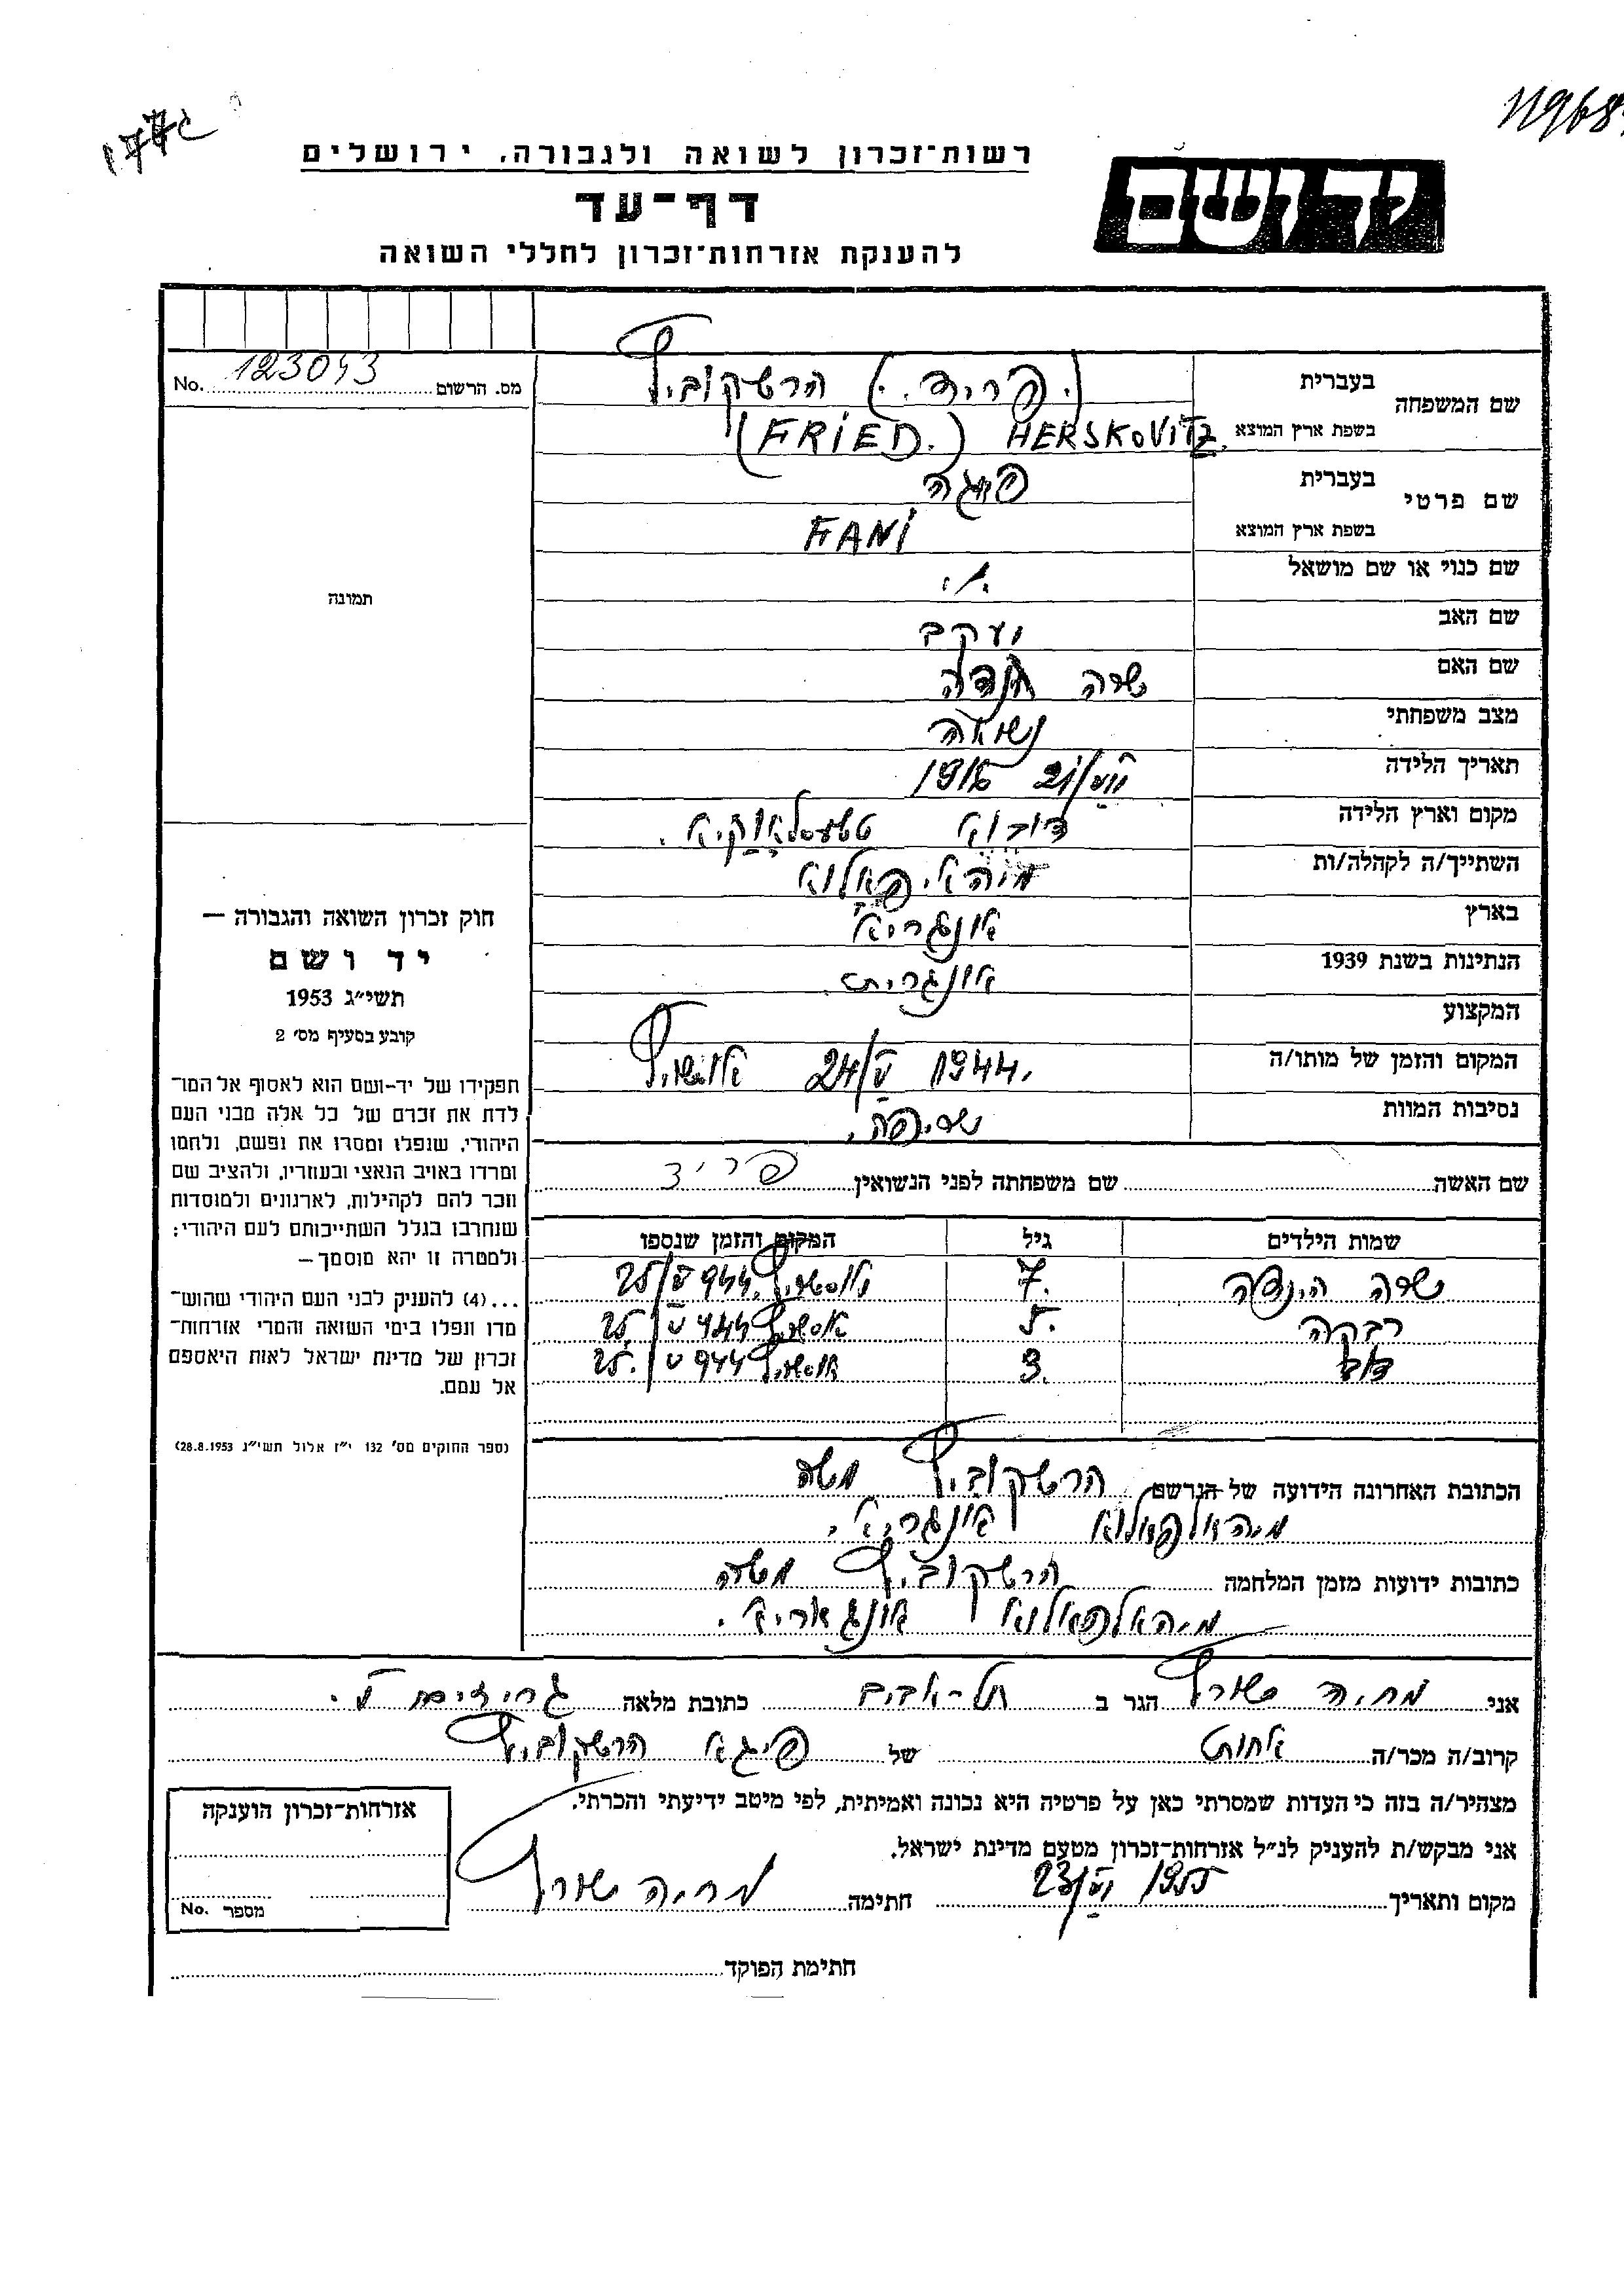 119684
רשות־זכרון לשואה ולגבורה, ירושלים
יד ושם
דף־עד
להענקת אזרחות־זכרון לחללי השואה
מס. הרשום 123043 No.
שם המשפחה
בעברית (פריד.) הרשקוביץ
בשפת ארץ המוצא (FRIED.) HERSKOVITZ.
שם פרטי
בעברית פייגה
בשפת ארץ המוצא FANI
שם כנוי או שם מושאל
שם האב יעקב
שם האם שרה הנדלה
מצב משפחתי נשואה
תאריך הלידה
מקום וארץ הלידה
השתייך/ה לקהלה/ות מיהאיפאלווא
בארץ אונגריא
הנתינות בשנת 1939 אונגרית.
המקצוע
המקום והזמן של מותו/ה 24/V 1944. אושוויץ
נסיבות המוות שריפה.
שם האשה שם משפחתה לפני הנשואין פריד
שמות הילדים גיל המקום והזמן שנספו
שרה הינדלה 7. 944 25/V
רבקה 5. 944 25/V
דוד 3. 944 25/V
הכתובת האחרונה הידועה של הנרשם הרשקוביץ משה
מיהאלפאלווא אונגריא.
כתובות ידועות מזמן המלחמה הרשקוביץ משה
מיהאלפאלווא אונגאריא.
תמונה
חוק זכרון השואה והגבורה —
יד ושם
תשי״ג 1953
קובע בסעיף מס׳ 2
תפקידו של יד-ושם הוא לאסוף אל המו־
לדת את זכרם של כל אלה מבני העם
היהודי, שנפלו ומסרו את נפשם, נלחמו
ומרדו באויב הנאצי ובעוזריו, ולהציב שם
וזכר להם לקהילות, לארגונים ולמוסדות
שנחרבו בגלל השתייכותם לעם היהודי;
ולמטרה זו יהא מוסמך—
...(4) להענין לבני העם היהודי שהוש־
מדו ונפלו בימי השואה והמרי אזרחות־
זכרון של מדינת ישראל לאות היאספם
אל עמם.
(ספר החוקים מס׳ 132 י״ז אלול תשי״ג 28.8.1953)
אני מריה שורץ הגר ב תל-אביב כתובת מלאה
קרוב/ה מכר/ה אחות של פייגא הרשקוביץ
מצהיר/ה בזה כי העדות שמסרתי כאן על פרטיה היא נכונה ואמיתית, לפי מיטב ידיעתי והכרתי.
אני מבקש/ת להעניק לנ״ל אזרחות־זכרון מטעם מדינת ישראל.
מקום ותאריך 1955 חתימה מריה שורץ
אזרחות־זכרון הוענקה
מספר No.
חתימת הפוקד